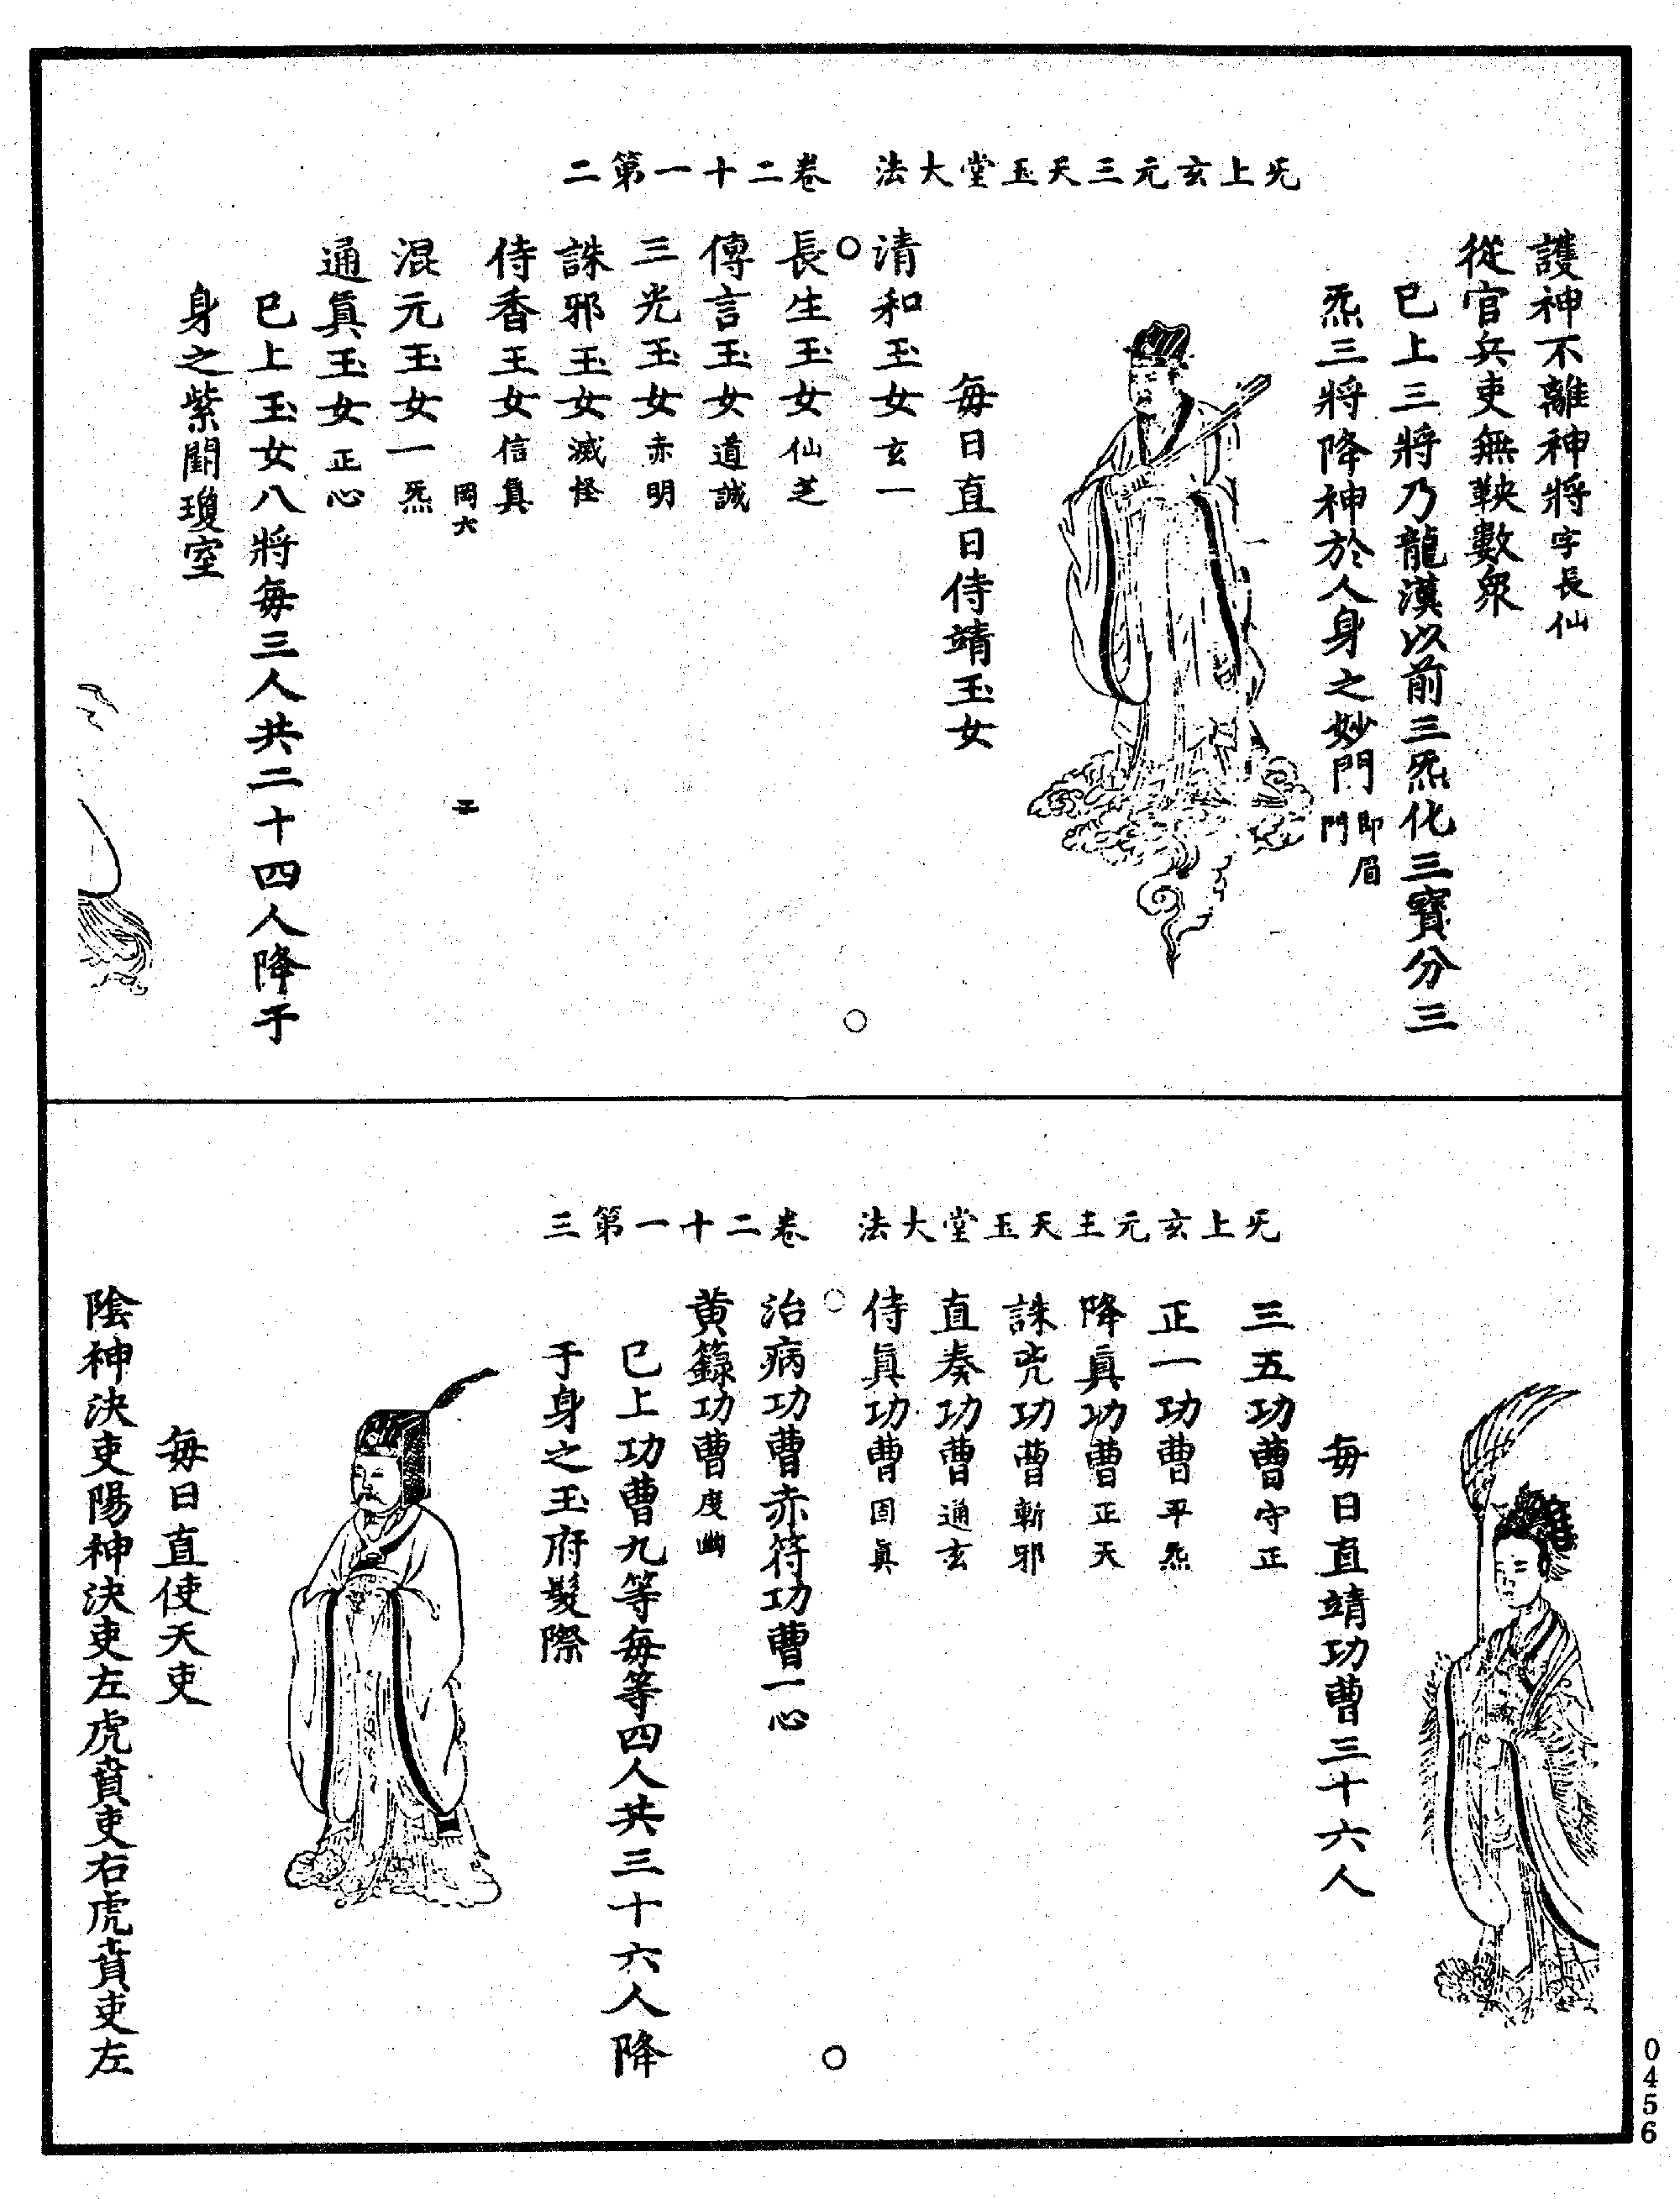 无上玄元三天玉堂大法 卷二十一第二
護神不離神將字長仙
從官兵吏無鞅數衆
已上三將乃龍漢以前三炁化三寶分三
炁三將降神於人身之妙門即眉門
每日直日侍靖玉女
清和玉女玄一
長生玉女仙芝
傳言玉女道誠
三光玉女赤明
誅邪玉女滅怪
侍香玉女信真
岡六
二
混元玉女一炁
通真玉女正心
已上玉女八將每三人共二十四人降于
身之紫閣瓊室
无上玄元三天玉堂大法 卷二十一第三
每日直靖功曹三十六人
三五功曹守正
正一功曹平炁
降真功曹正天
誅兇功曹斬邪
直奏功曹通玄
侍真功曹固真
治病功曹赤符功曹一心
黄籙功曹度幽
已上功曹九等每等四人共三十六人降
于身之玉府髮際
每日直使天吏
陰神決吏陽神決吏左虎賁吏右虎賁吏左
0456